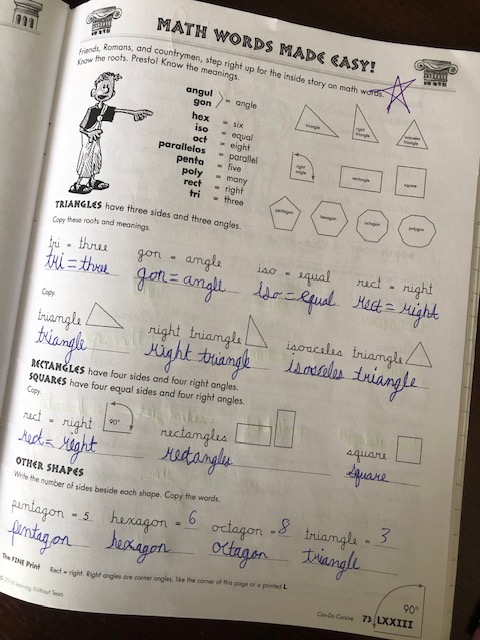 MATH WORDS MADE EASY!
Friends, Romans, and countrymen, step right up for the inside story on math words.
Know the roots. Presto! Know the meanings.
angul
gon = angle
hex = six
iso = equal
oct = eight
parallelos = parallel
penta = five
poly = many
rect = right
tri = three
triangle right triangle isosceles triangle
right angle rectangle square
pentagon hexagon octagon polygon
TRIANGLES have three sides and three angles.
Copy these roots and meanings.
tri = three gon = angle iso = equal rect = right
tri = three gon = angle iso = equal rect = right
Copy.
triangle right triangle isosceles triangle
triangle right triangle isosceles triangle
RECTANGLES have four sides and four right angles.
SQUARES have four equal sides and four right angles.
Copy.
rect = right 90° rectangles square
rect = right rectangles square
OTHER SHAPES
Write the number of sides beside each shape. Copy the words.
pentagon = 5 hexagon = 6 octagon = 8 triangle = 3
pentagon hexagon octagon triangle
The FINE Print Rect = right. Right angles are corner angles, like the corner of this page or a printed L
Learning Without Tears
Can-Do Cursive 73 LXXIII
90°